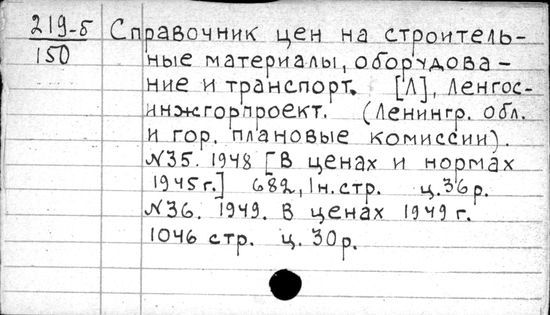 219-б
150
Справочник цен на строитель-
ные материалы, оборудова-
ние и транспорт. [Л], Ленгос-
инжгорпроект. (Ленингр. обл.
и гор. плановые комиссии).
№35. 1948 [В ценах и нормах
1945г.] 682, 1н.стр. ц.36р.
№36. 1949. В ценах 1949г.
1046 стр. ц.30р.